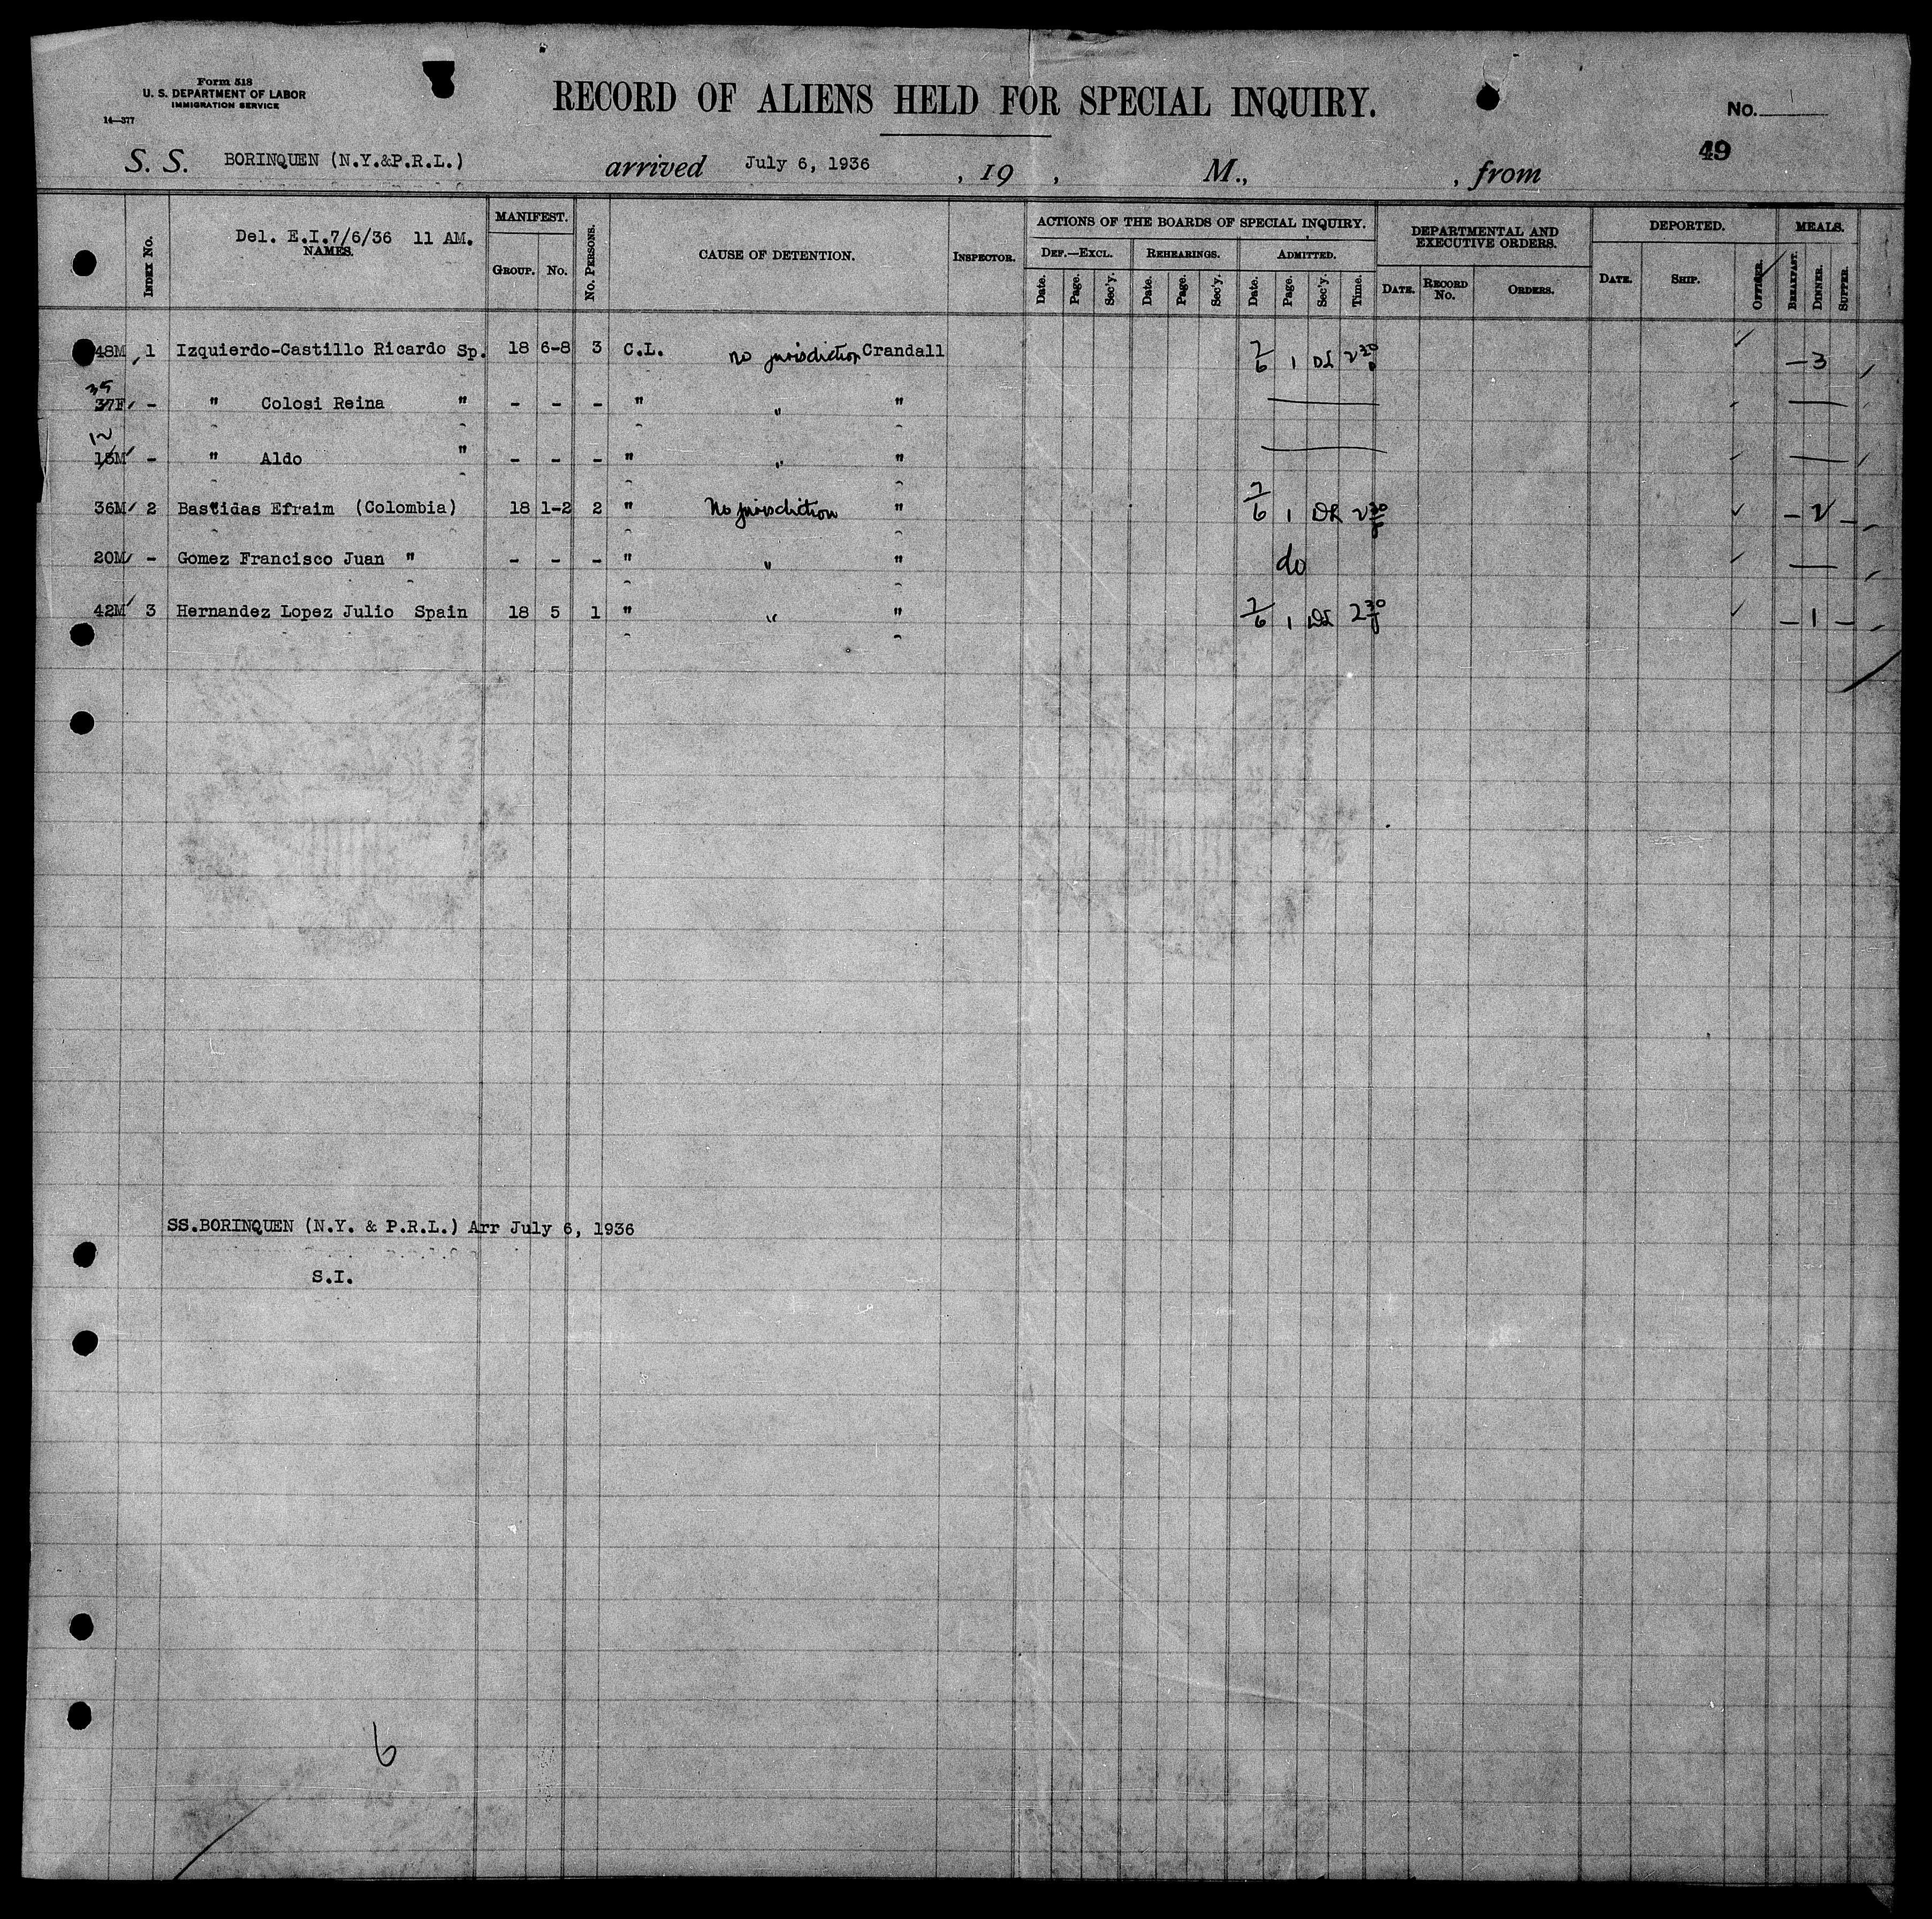 Form 518
U. S. DEPARTMENT OF LABOR
IMMIGRATION SERVICE
14—377
RECORD OF ALIENS HELD FOR SPECIAL INQUIRY.
No. 1
49
S. S. BORINQUEN (N.Y.&P.R.L.) arrived July 6, 1936 , 19 , M., , from
INDEX NO. Del. E.I.7/6/36 11 AM. NAMES. MANIFEST. GROUP. NO. NO. PERSONS. CAUSE OF DETENTION. INSPECTOR. ACTIONS OF THE BOARDS OF SPECIAL INQUIRY. DEPARTMENTAL AND EXECUTIVE ORDERS. DEPORTED. MEALS.
DEF.—EXCL. REHEARINGS. ADMITTED.
Date. Page. Sec'y. Date. Page. Sec'y. Date. Page. Sec'y. Time. DATE. RECORD NO. ORDERS. DATE. SHIP. OFFICER. BREAKFAST. DINNER. SUPPER.
48M 1 Izquierdo-Castillo Ricardo Sp. 18 6-8 3 C.L. no jurisdiction Crandall 7/6 1 DL 2 30 — 3
35
37F - " Colosi Reina " - - - " " "
12
15M - " Aldo " - - - " " "
36M 2 Bastidas Efraim (Colombia) 18 1-2 2 " No jurisdiction " 7/6 1 DL 2 30 — 2 —
20M - Gomez Francisco Juan " - - - " " " do
42M 3 Hernandez Lopez Julio Spain 18 5 1 " " " 7/6 1 DL 2 30 — 1 —
SS.BORINQUEN (N.Y. & P.R.L.) Arr July 6, 1936
S.I.
6